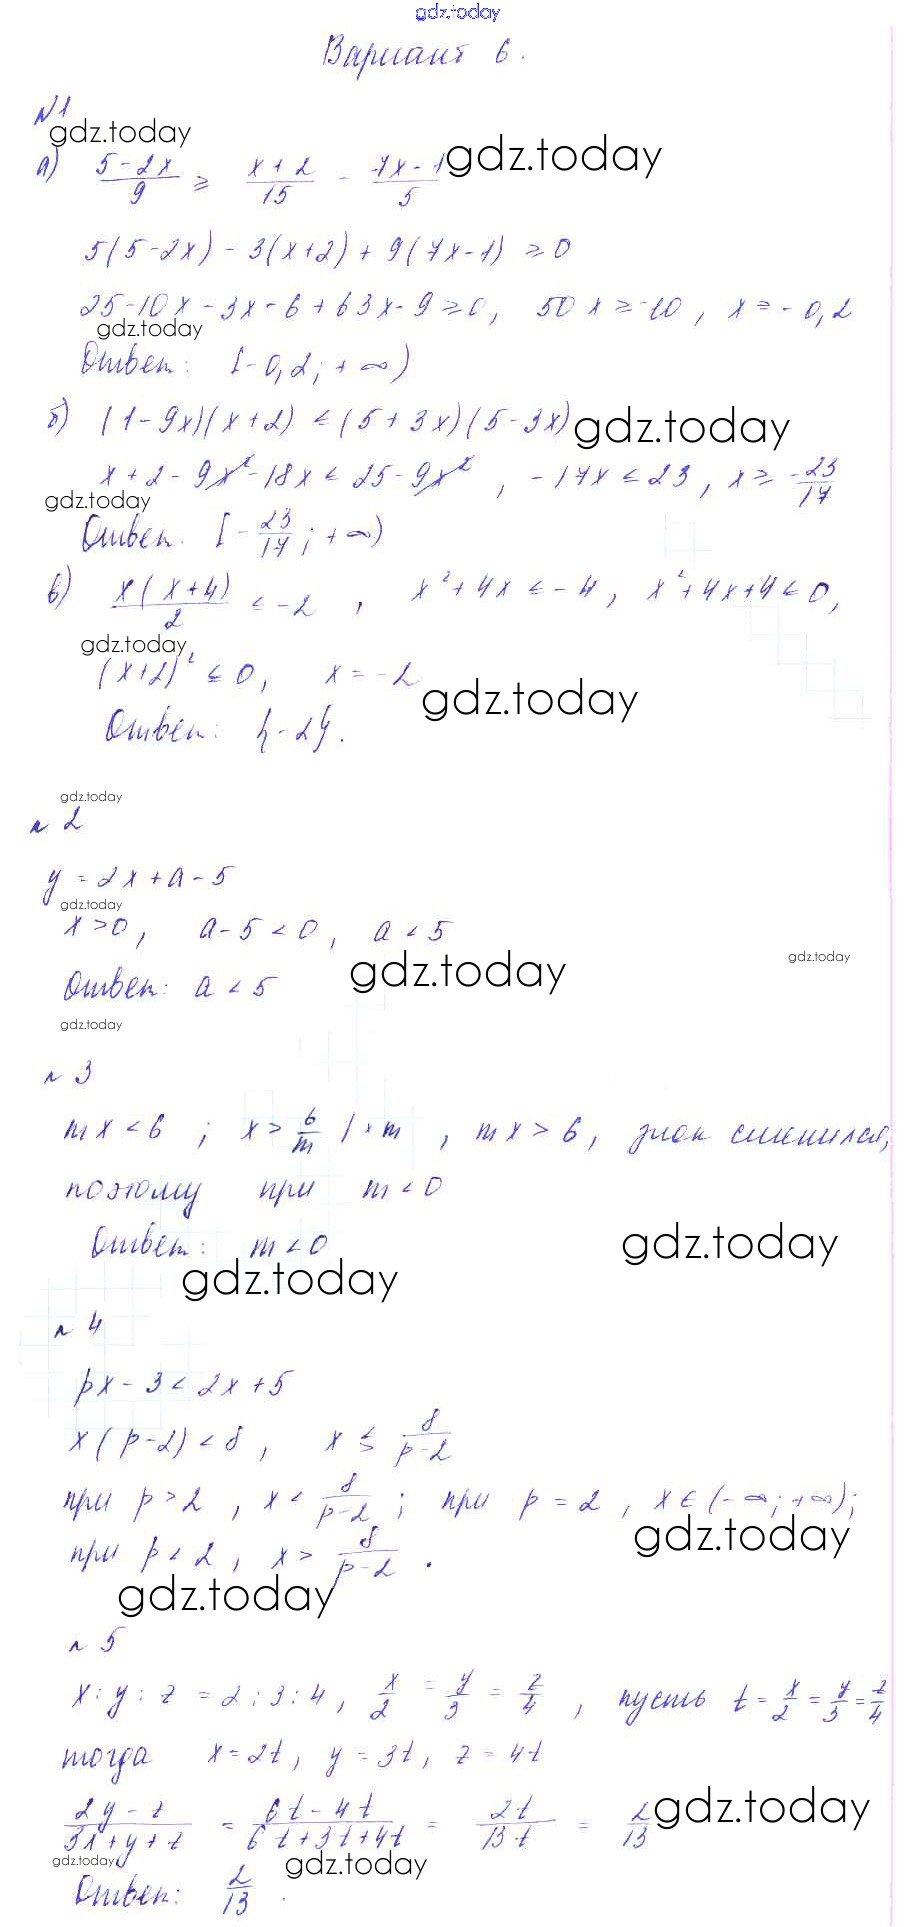 gdz.today
Вариант 6.
№1
gdz.today
а) (5-2x)/9 ≥ (x+2)/15 - (7x-1)/5 gdz.today
5(5-2x) - 3(x+2) + 9(7x-1) ≥ 0
25-10x-3x-6+63x-9≥0, 50x≥-10, x≥-0,2
gdz.today
Ответ: [-0,2; +∞)
б) (1-9x)(x+2) ≤ (5+3x)(5-3x) gdz.today
x+2-9x²-18x≤25-9x², -17x≤23, x≥-23/17
gdz.today
Ответ. [-23/17; +∞)
в) x(x+4)/2 ≤ -2, x²+4x≤-4, x²+4x+4≤0,
gdz.today
(x+2)²≤0, x=-2
gdz.today
Ответ: {-2}.
gdz.today
№2
y=2x+a-5
gdz.today
x>0, a-5<0, a<5
gdz.today
gdz.today
Ответ: a<5
gdz.today
№3
mx<6; x>6/m |·m, mx>6, знак сменился,
поэтому при m<0
Ответ: m<0
gdz.today
gdz.today
№4
px-3<2x+5
x(p-2)<8, x≶8/(p-2)
при p>2, x<8/(p-2); при p=2, x∈(-∞;+∞);
gdz.today
при p<2, x>8/(p-2).
gdz.today
№5
x:y:z=2:3:4, x/2=y/3=z/4, пусть t=x/2=y/3=z/4
тогда x=2t, y=3t, z=4t
(2y-z)/(3x+y+z) = (6t-4t)/(6t+3t+4t) = 2t/13t = 2/13 gdz.today
gdz.today
gdz.today
Ответ: 2/13.